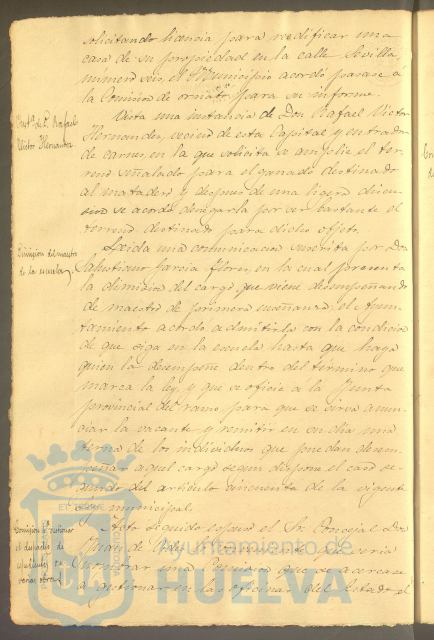 solicitando licencia para reedificar una
casa de su propiedad en la calle Sevilla,
numero seis, el Municipio acordó pasase á
la Comision de ornato para su informe.
Inst.ª de D. Rafael
Victor Hernandez
Vista una instancia de Don Rafael Victor
Hernandez, vecino de esta Capital y entrador
de carnes, en la que solicita se amplie el ter-
reno señalado para el ganado destinado
al matadero y despues de una ligera discu-
sion se acordó denegarla por ser bastante el
terreno destinado para dicho objeto.
Dimision del maestro
de la escuela
Leida una comunicacion suscrita por Don
Garcia Flores, en la cual presenta
la dimision del cargo que viene desempeñando
de maestro de primera enseñanza: el Ayun-
tamiento acordó admitirla con la condicion
de que siga en la escuela hasta que haya
quien la desempeñe dentro del término que
marca la ley, y que se oficie á la Junta
provincial del ramo para que se sirva anun-
ciar la vacante y remitir en su dia una
terna de los individuos que puedan desem-
peñar aquel cargo segun dispone el caso se-
gundo del articulo cincuenta de la vigente
Ley municipal.
Comision
el despacho de
espedientes de
varias obras
Acto seguido espuso el Sr. Concejal Don
Juan de que
nombrar una Comision que se acercase
a gestionar en las oficinas del Estado el
Ayuntamiento de
HUELVA